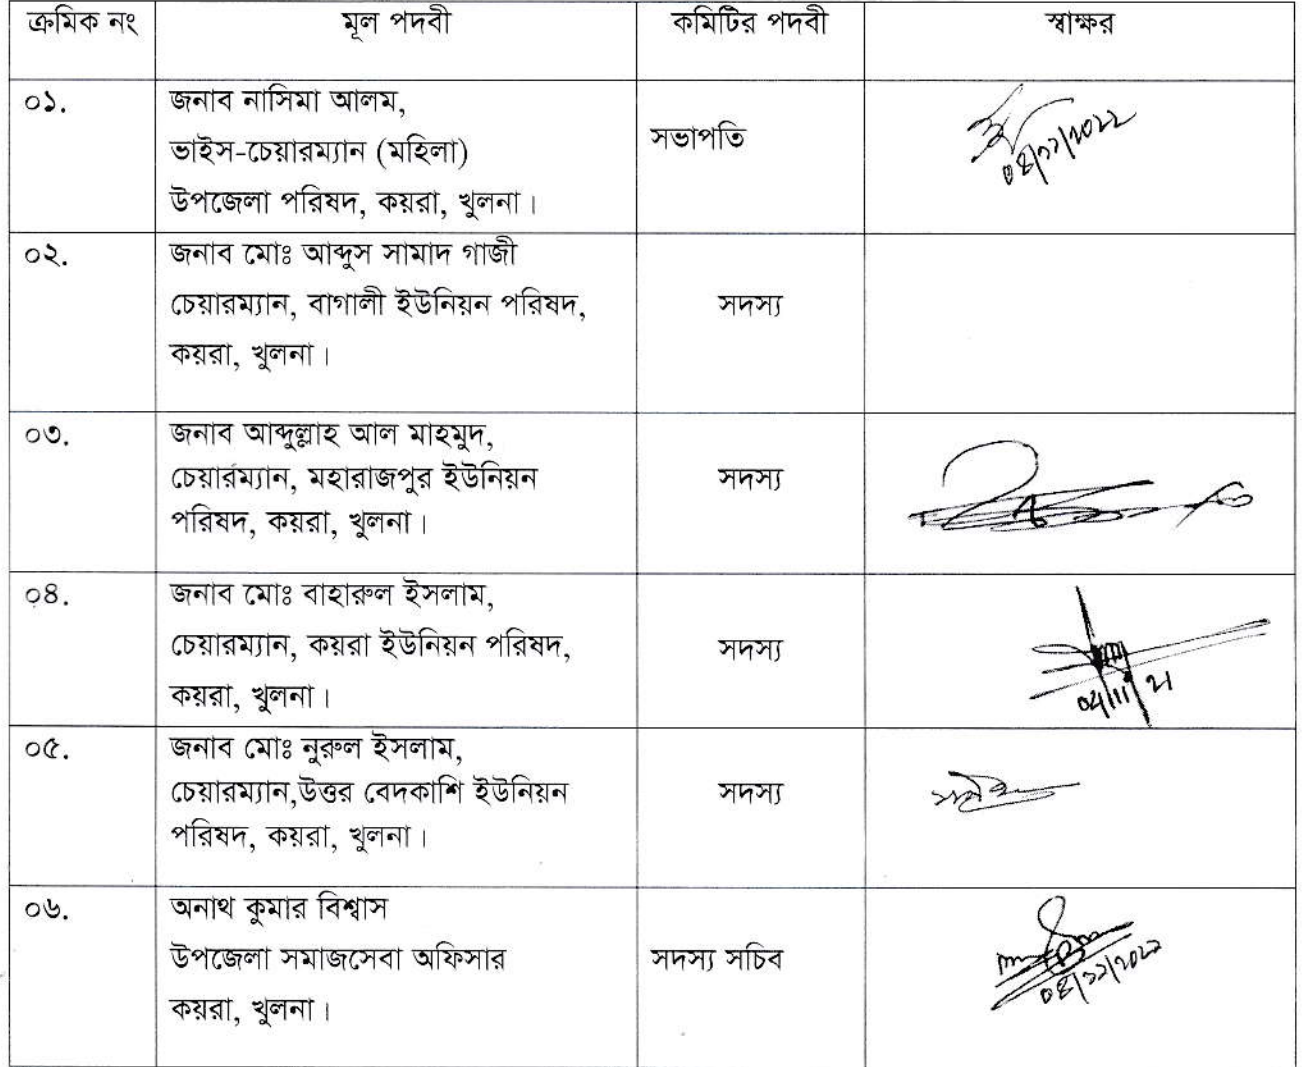 ক্রমিক নং মূল পদবী কমিটির পদবী স্বাক্ষর
০১. জনাব নাসিমা আলম,
ভাইস-চেয়ারম্যান (মহিলা)
উপজেলা পরিষদ, কয়রা, খুলনা।
সভাপতি
০২. জনাব মোঃ আব্দুস সামাদ গাজী
চেয়ারম্যান, বাগালী ইউনিয়ন পরিষদ,
কয়রা, খুলনা।
সদস্য
০৩. জনাব আব্দুল্লাহ আল মাহমুদ,
চেয়ারম্যান, মহারাজপুর ইউনিয়ন
পরিষদ, কয়রা, খুলনা।
সদস্য
০৪. জনাব মোঃ বাহারুল ইসলাম,
চেয়ারম্যান, কয়রা ইউনিয়ন পরিষদ,
কয়রা, খুলনা।
সদস্য
০৫. জনাব মোঃ নুরুল ইসলাম,
চেয়ারম্যান,উত্তর বেদকাশি ইউনিয়ন
পরিষদ, কয়রা, খুলনা।
সদস্য
০৬. অনাথ কুমার বিশ্বাস
উপজেলা সমাজসেবা অফিসার
কয়রা, খুলনা।
সদস্য সচিব